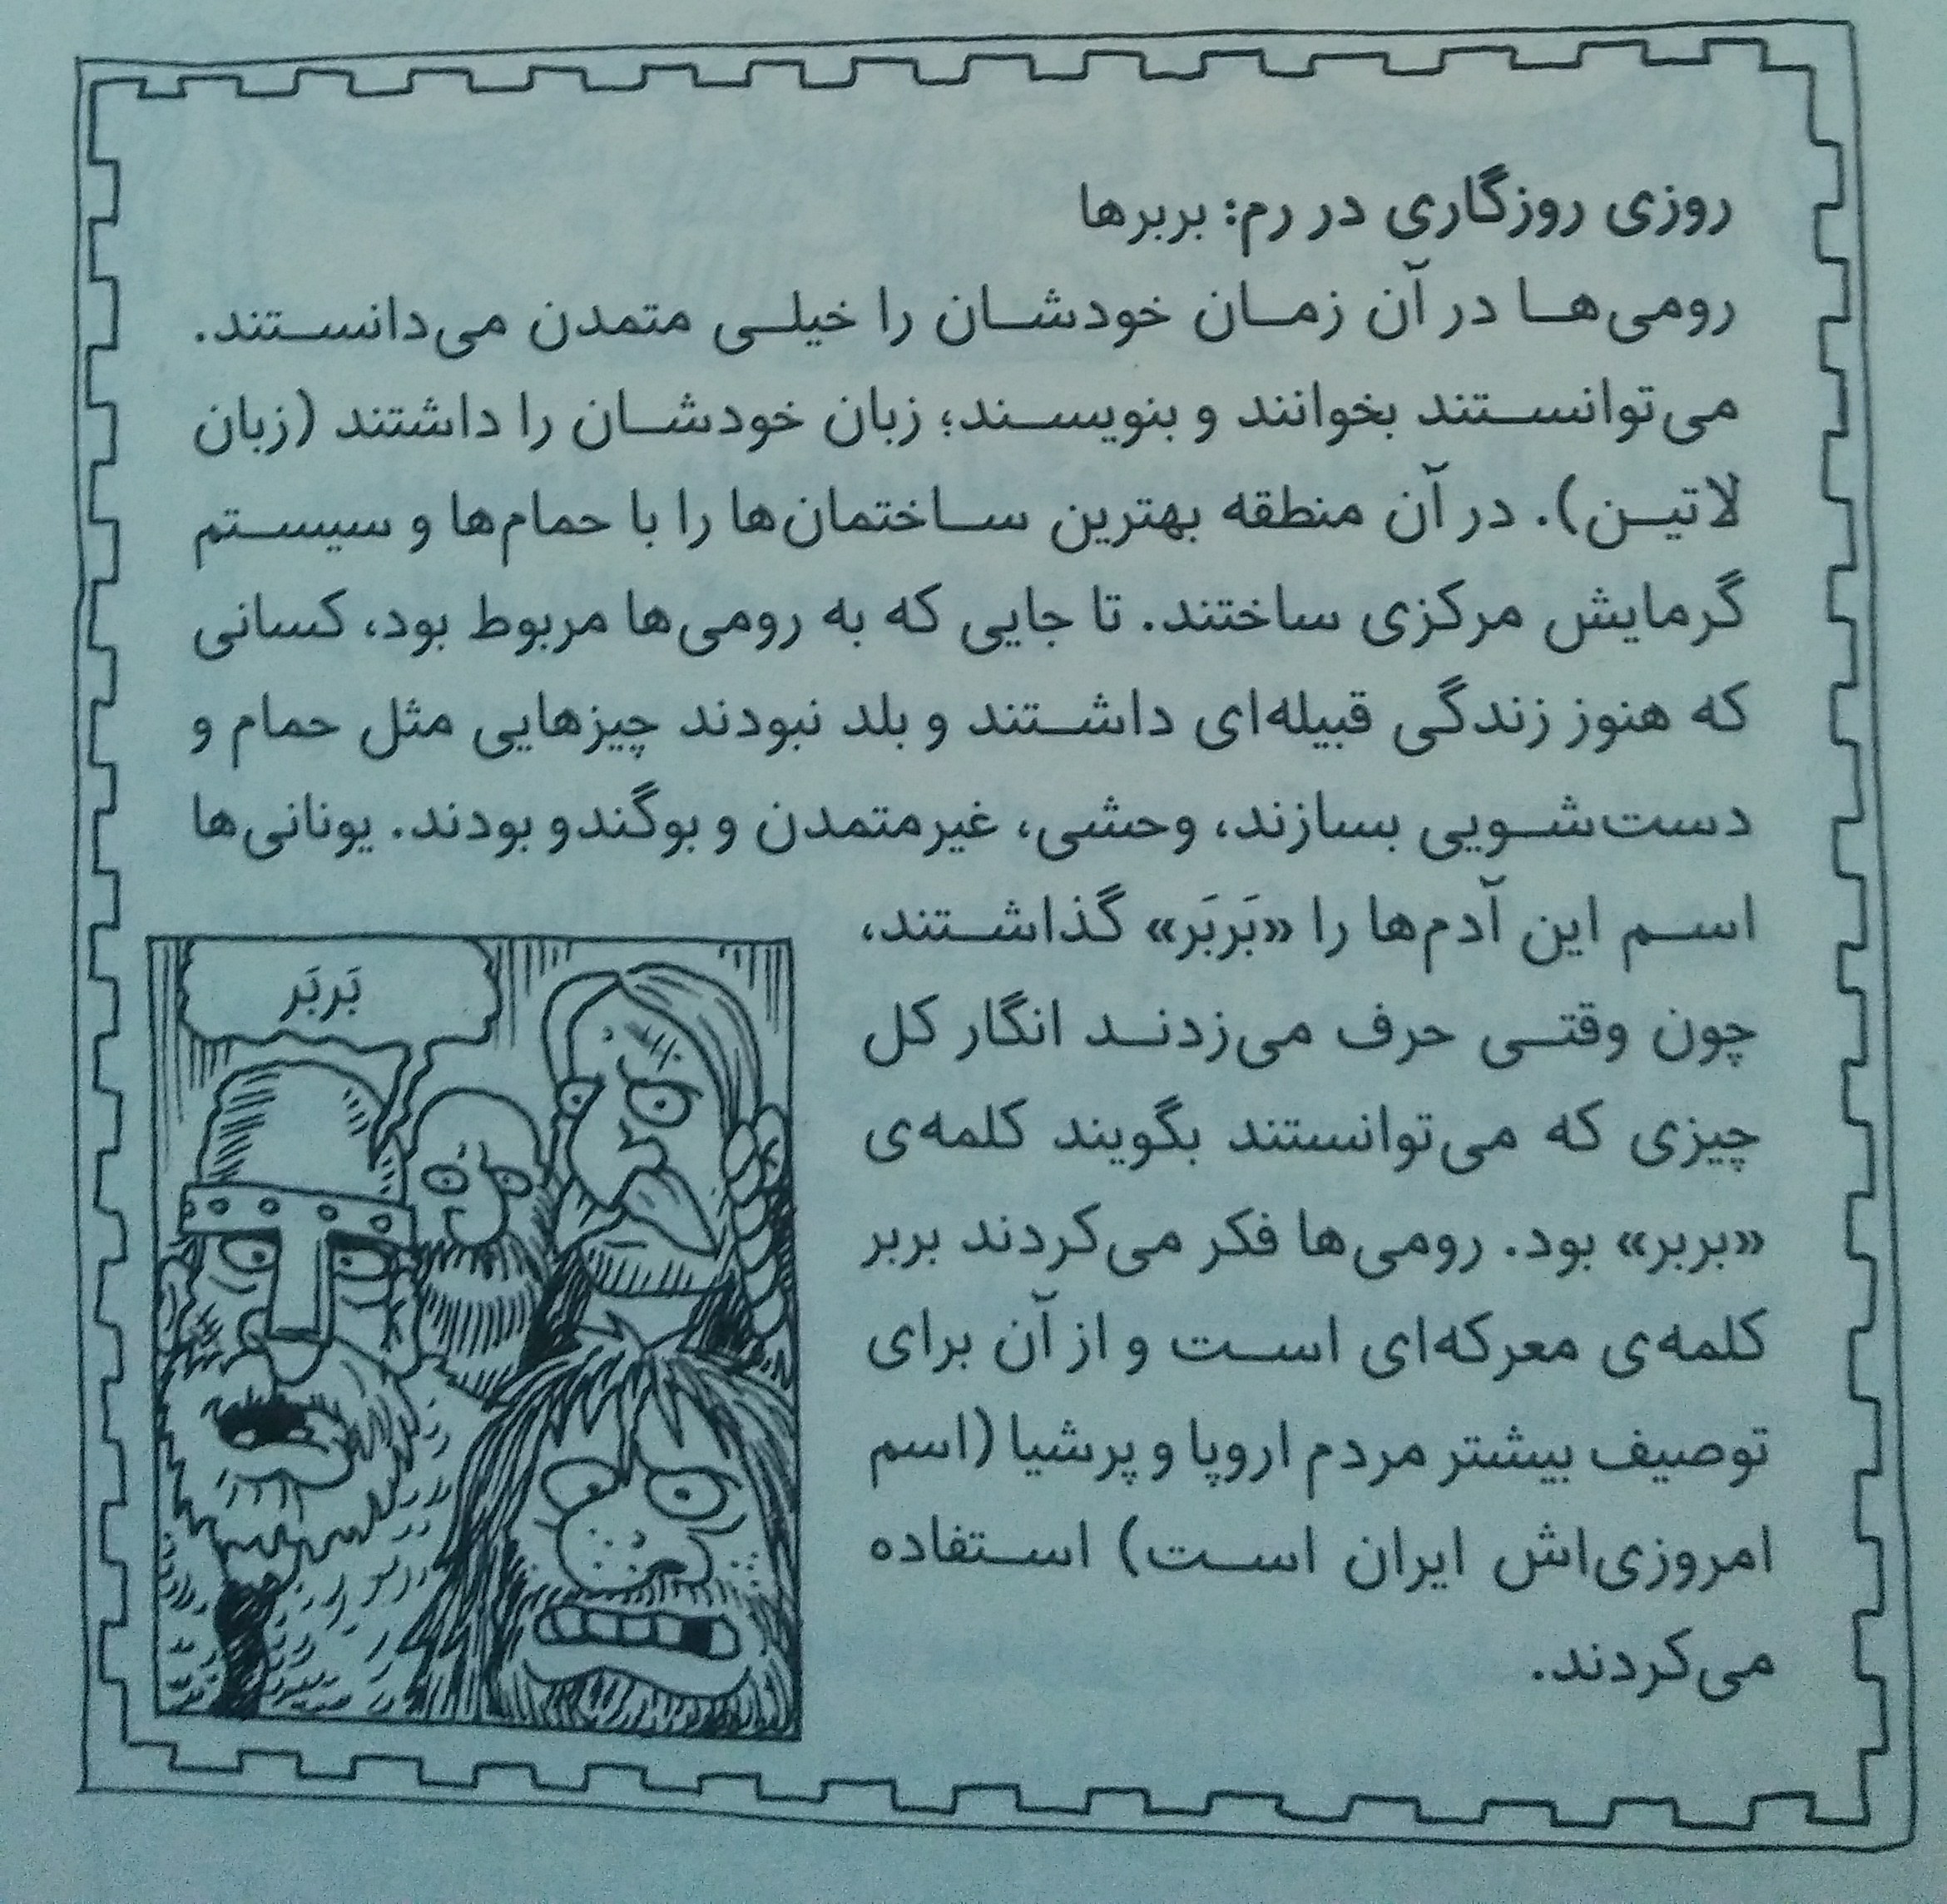 روزی روزگاری در رم: بربرها
رومی‌ها در آن زمان خودشان را خیلی متمدن می‌دانستند.
می‌توانستند بخوانند و بنویسند؛ زبان خودشان را داشتند (زبان
لاتین). در آن منطقه بهترین ساختمان‌ها را با حمام‌ها و سیستم
گرمایش مرکزی ساختند. تا جایی که به رومی‌ها مربوط بود، کسانی
که هنوز زندگی قبیله‌ای داشتند و بلد نبودند چیزهایی مثل حمام و
دست‌شویی بسازند، وحشی، غیرمتمدن و بوگندو بودند. یونانی‌ها
اسم این آدم‌ها را «بَربَر» گذاشتند،
چون وقتی حرف می‌زدند انگار کل
چیزی که می‌توانستند بگویند کلمه‌ی
«بربر» بود. رومی‌ها فکر می‌کردند بربر
کلمه‌ی معرکه‌ای است و از آن برای
توصیف بیشتر مردم اروپا و پرشیا (اسم
امروزی‌اش ایران است) استفاده
می‌کردند.
بَربَر